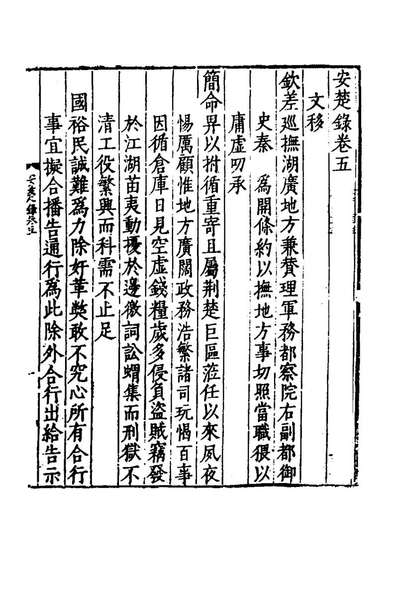 安楚錄卷五
文移
欽差巡撫湖廣地方兼贊理軍務都察院右副都御
史秦　為開條約以撫地方事切照當職猥以
庸虛叨承
簡命畀以拊循重寄且屬荆楚巨區涖任以來夙夜
惕厲顧惟地方廣闊政務浩繁諸司玩愒百事
因循倉庫日見空虛錢糧歲多侵負盜賊竊發
於江湖苗夷動擾於邊徼詞訟蝟集而刑獄不
清工役繁興而科需不止足
國裕民誠難為力除奸革弊敢不究心所有合行
事宜擬合播告通行為此除外合行出給告示
安楚錄卷五